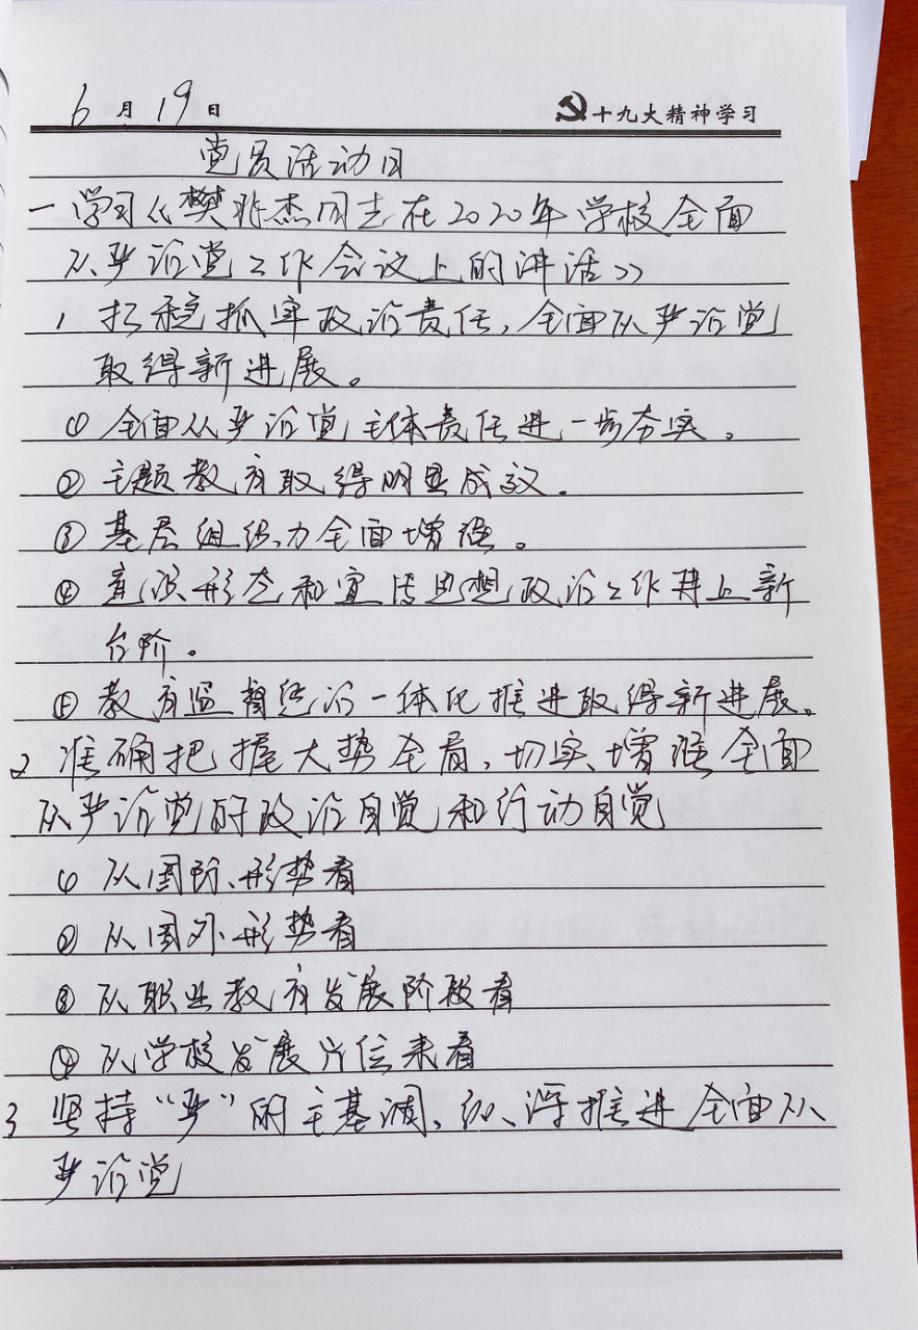 6月19日
十九大精神学习
党员活动日
一 学习《樊非杰同志在2020年学校全面
从严治党工作会议上的讲话》
1 扛稳抓牢政治责任,全面从严治党
取得新进展。
① 全面从严治党主体责任进一步夯实。
② 主题教育取得明显成效。
③ 基层组织力全面增强。
④ 意识形态和宣传思想政治工作再上新
台阶。
⑤ 教育监督惩治一体化推进取得新进展。
2 准确把握大势全局,切实增强全面
从严治党的政治自觉和行动自觉
① 从国际形势看
② 从国外形势看
③ 从职业教育发展阶段看
④ 从学校发展方位来看
3 坚持“严”的主基调,纵深推进全面从
严治党